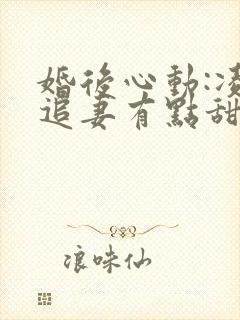 婚後心動:凌
追妻有點甜
浪味仙